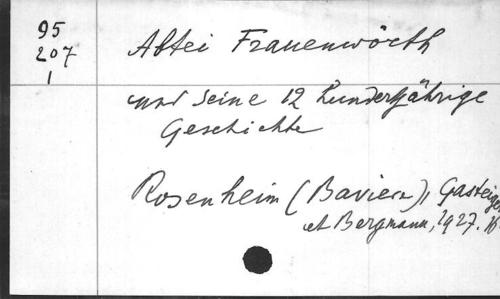 95
207
1
Abtei Frauenwörth
und seine 12 hundertjährige
Geschichte
Rosenheim (Baviera), Gasteiger
et Bergmann, 1927. 16